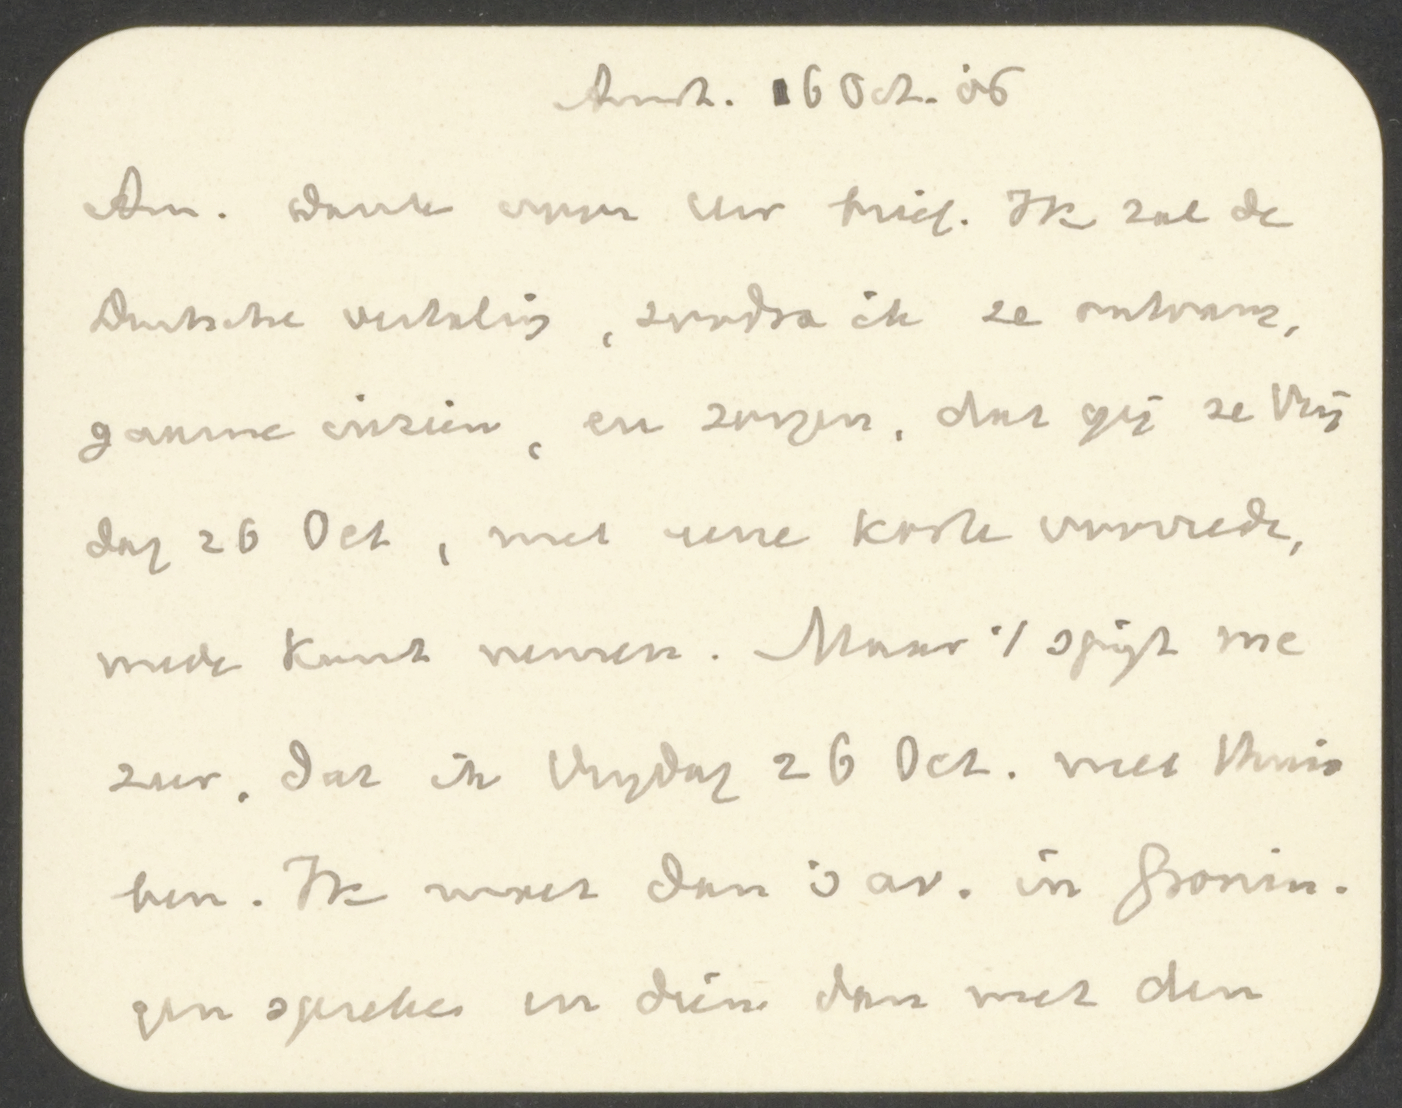 Amst. 16 Oct. 06
Am. dank voor Uw brief. Ik zal de
Duitsche vertaling, zoodra ik ze ontvang,
gaarne inzien, en zorgen, dat gij ze Vrij
dag 26 Oct, met eene korte voorrede,
mede kunt nemen. Maar 't spijt me
zeer, dat ik Vrijdag 26 Oct. niet thuis
ben. Ik moet dan 's av. in Gronin-
gen spreken en dien dan met den